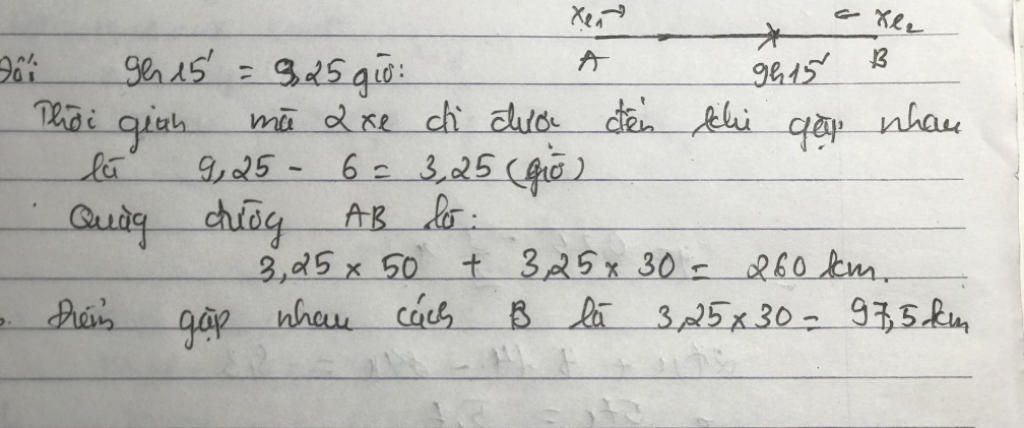 xe₁→ ← xe₂
A 9h15' B
Đổi 9h15' = 9,25 giờ:
Thời gian mà 2 xe đi được đến khi gặp nhau
là 9,25 - 6 = 3,25 (giờ)
Quãng đường AB là:
3,25 × 50 + 3,25 × 30 = 260 km.
Điểm gặp nhau cách B là 3,25 × 30 = 97,5 km